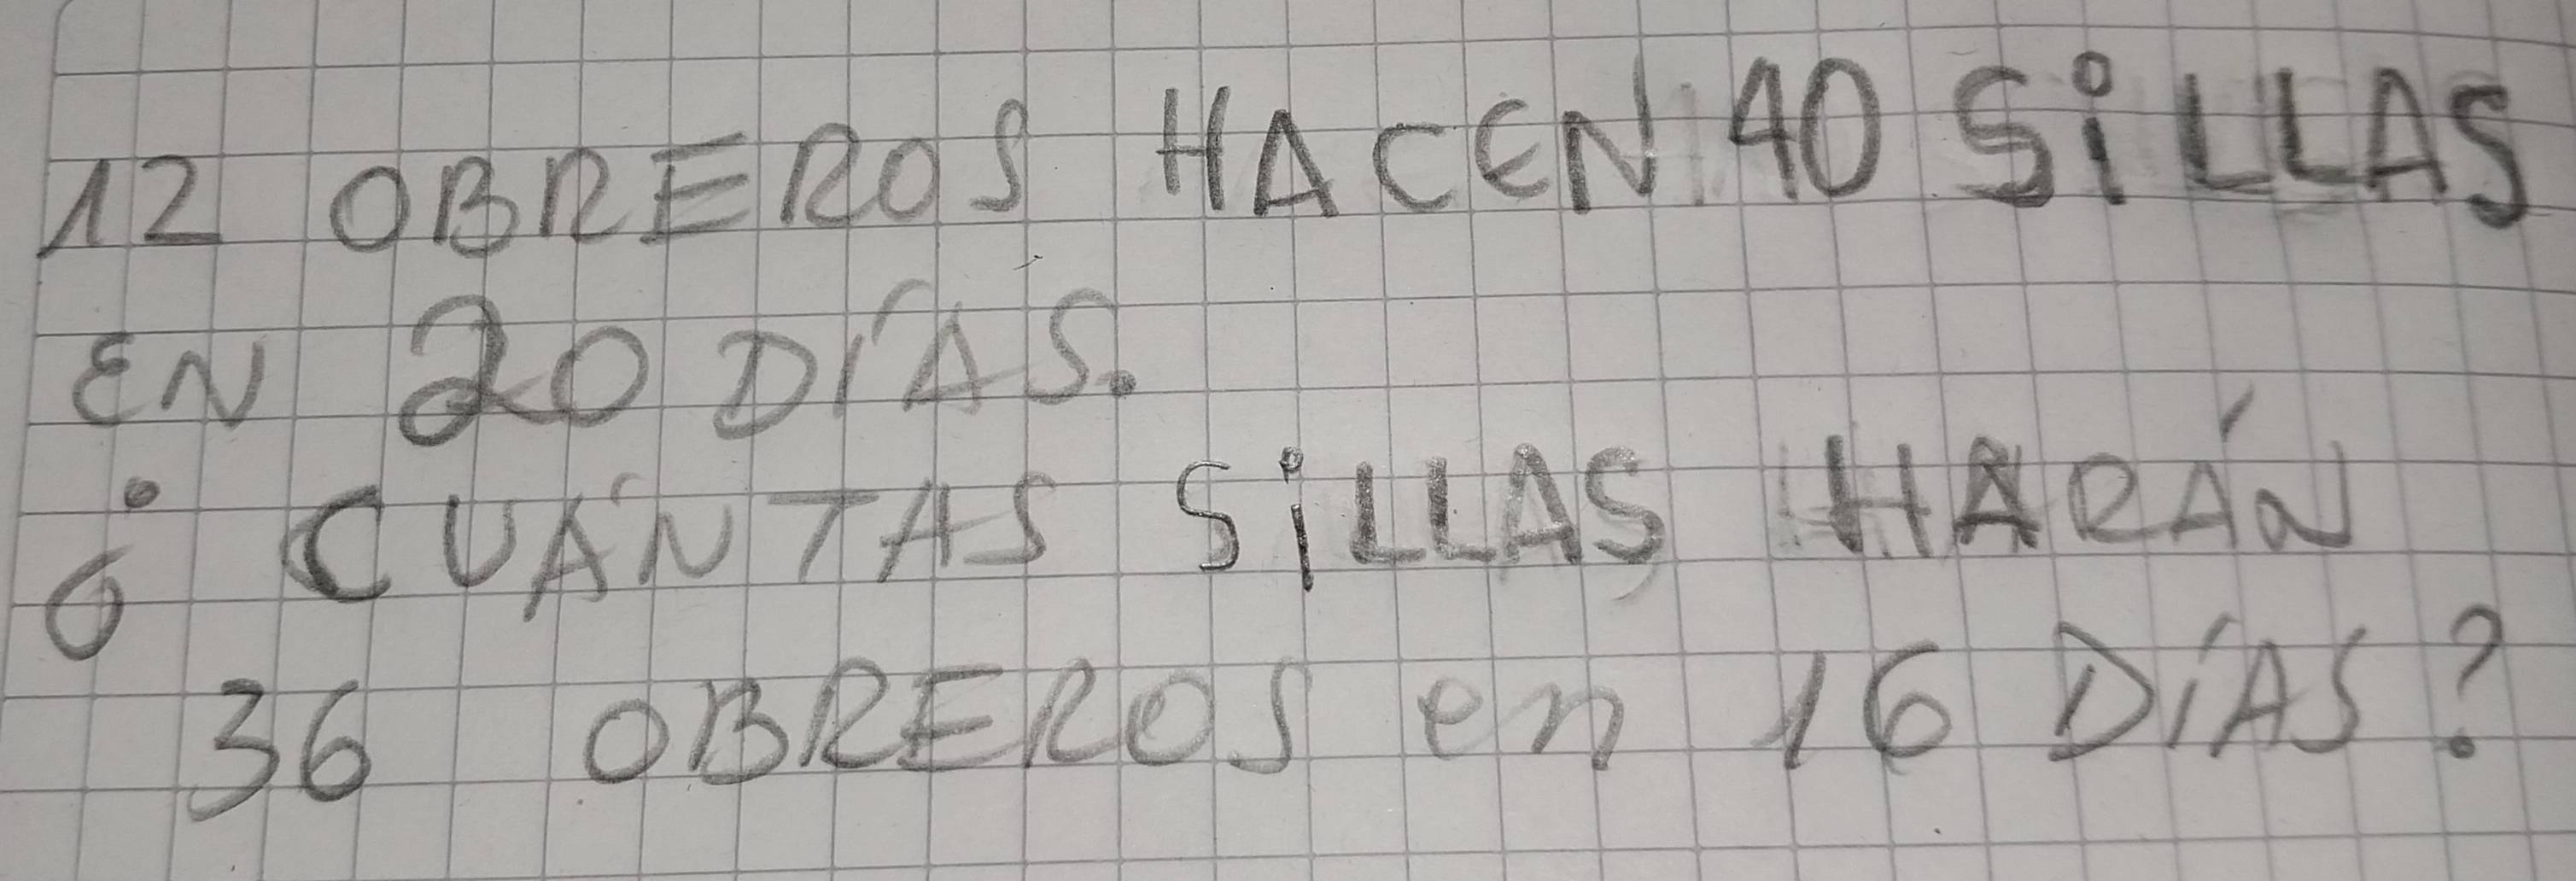 12 OBREROS HACEN 40 SiLLAS
EN 20 DÍAS.
¿CUÁNTAS SiLLAS HARÁN
36 OBREROS en 16 DÍAS?